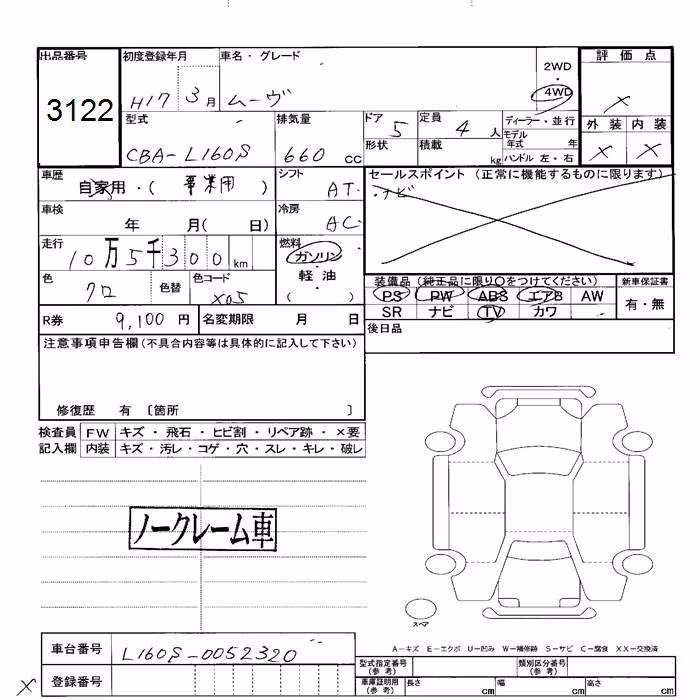 出品番号 初度登録年月 車名・グレード 2WD 評価点
3122 H17 3月 ムーヴ 4WD ×
型式 排気量 ドア 定員 ディーラー・並行 外装 内装
CBA-L160S 660cc 5 4人 モデル年式 年 × ×
形状 積載 kg ハンドル 左・右
車歴 自家用・(事業用) シフト AT セールスポイント (正常に機能するものに限ります)
・ナビ
車検 年 月(日) 冷房 AC
走行 10万5千300km 燃料 ガソリン・軽油
( )
色 クロ 色替 色コード X05
装備品 (純正品に限り○をつけてください) 新車保証書
PS PW ABS エアB AW 有・無
SR ナビ TV カワ
R券 9,100円 名変期限 月 日
後日品
注意事項申告欄(不具合内容等は具体的に記入して下さい)
修復歴 有 〔箇所 〕
検査員 FW キズ・飛石・ヒビ割・リペア跡・×要
記入欄 内装 キズ・汚レ・コゲ・穴・スレ・キレ・破レ
ノークレーム車
スペア
A-キズ E-エクボ U-凹み W-補修跡 S-サビ C-腐食 XX-交換済
車台番号 L160S-0052320
登録番号
×
型式指定番号(参考) 類別区分番号(参考)
車庫証明用(参考) 長さ cm 幅 cm 高さ cm